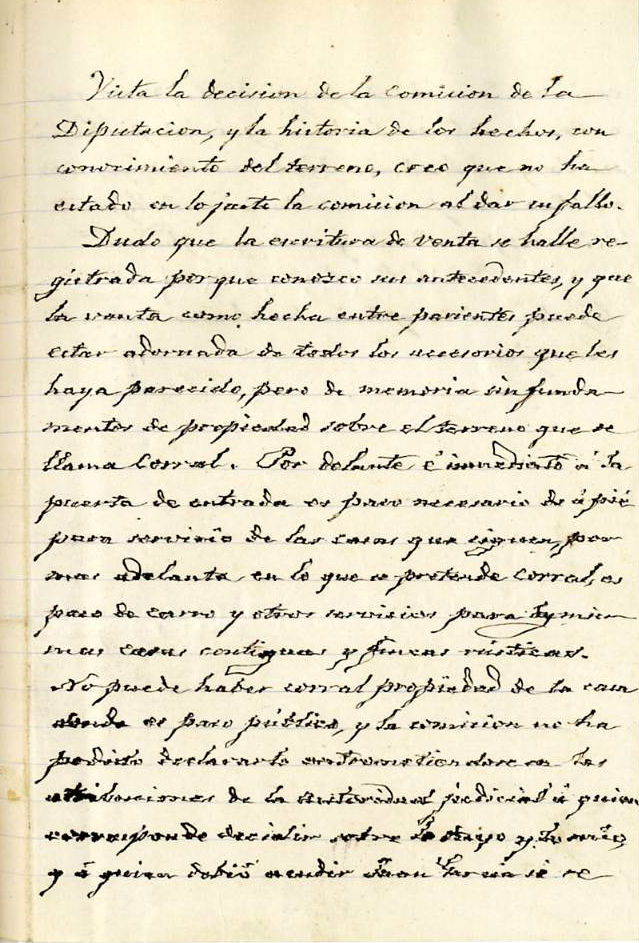 Vista la decision de la comision de la
Diputacion, y la historia de los hechos, con
conocimiento del terreno, creo que no ha
estado en lo justo la comision al dar su fallo.
Dudo que la escritura de venta se halle re-
gistrada porque conozco sus antecedentes, y que
la venta como hecha entre parientes puede
estar adornada de todos los accesorios que les
haya parecido, pero de memoria sin funda-
mentos de propiedad sobre el terreno que se
llama Corral. Por delante é inmediato á la
puerta de entrada es paso necesario de á pié
para servicio de las casas que siguen, por
mas adelante en lo que se pretende Corral, es
paso de carro y otros servicios para las mis-
mas casas contiguas y fincas rústicas.
No puede haber corral propiedad de la casa
donde es paso público, y la comision no ha
podido declararlo entrometiendose en las
atribuciones de la autoridad judicial á quien
corresponde decidir sobre lo tuyo y lo mio,
y á quien debió acudir Juan Garcia si re